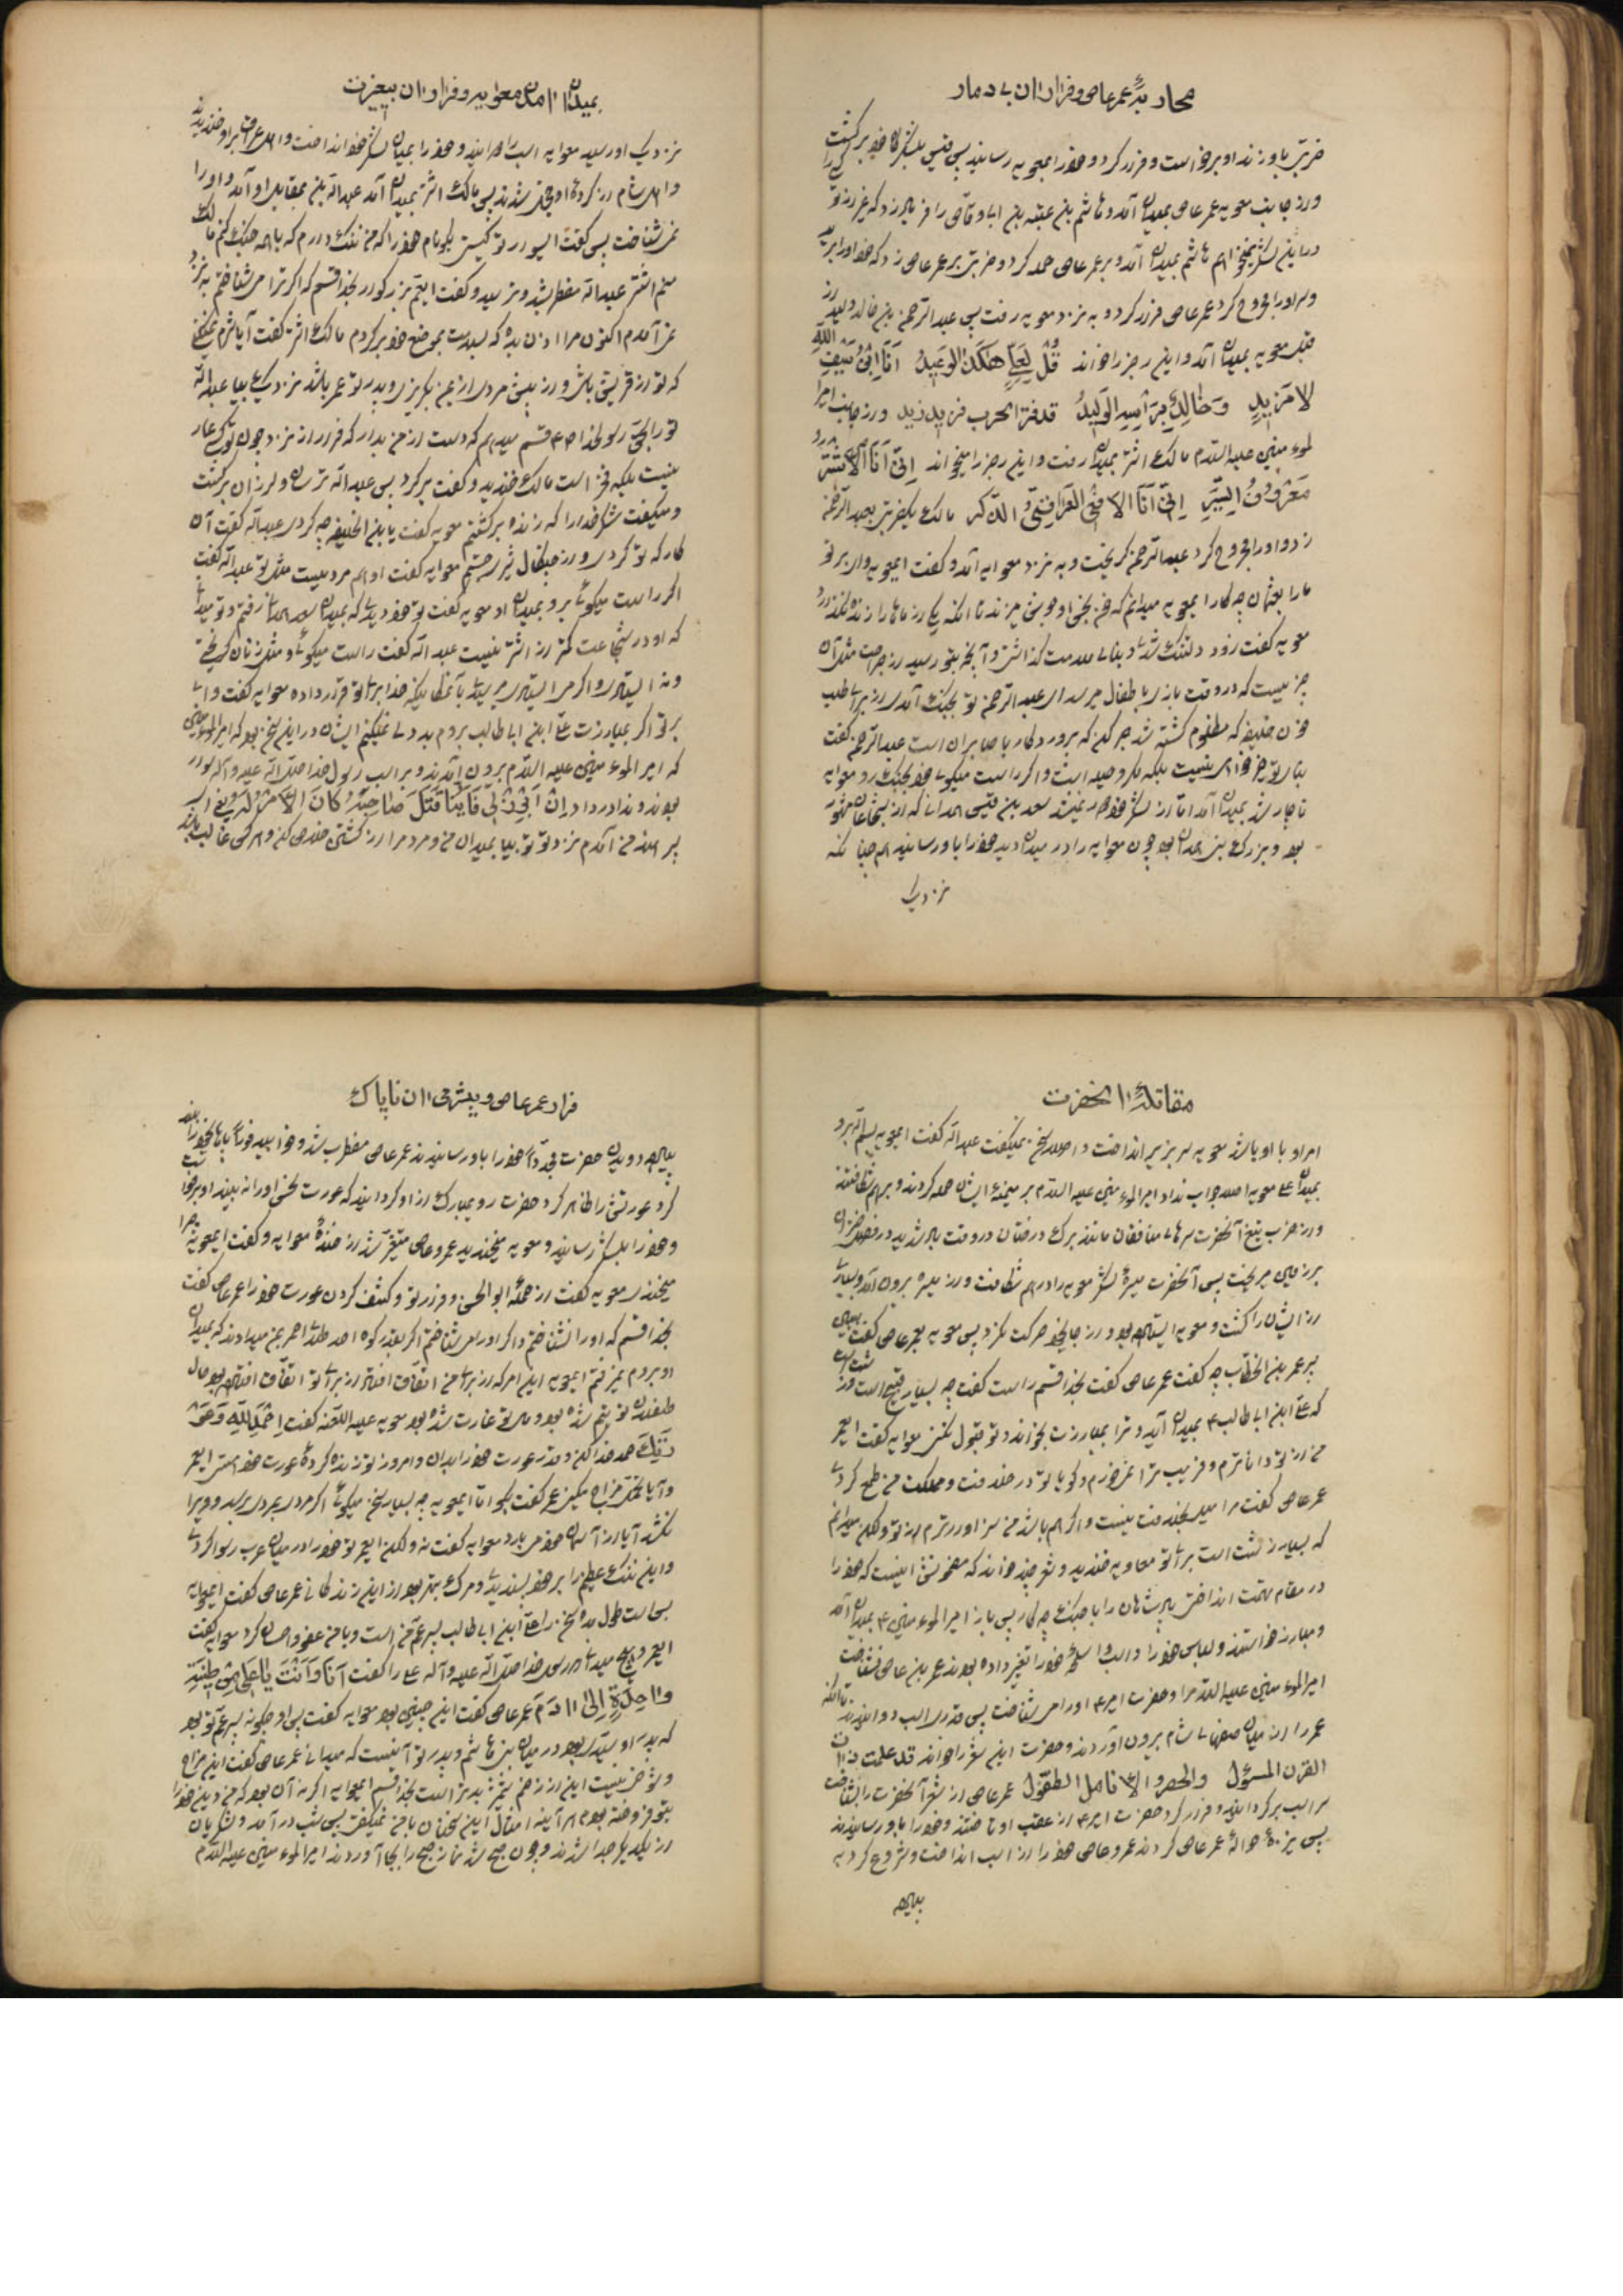 محاربهٔ عمرعاص و فرار ان بدمار
ضربتی باو زند او برخاست و فرار کرد و خود را بمعویه رسانید پس قیس بلشکرگاه خود برگشت
و از جانب معویه عمرعاص بمیدان آمد و هاشم بن عتبه بن ابی وقاص را
در این لشکر هاشم بمیدان آمد و بر عمرعاص حمله کرد و ضربتی بر عمرعاص زد که
و او را مجروح کرد عمرعاص فرار کرد و به نزد معویه رفت پس عبدالرحمن بن خالد ولید از
قبل معویه بمیدان آمد و این رجز را خواند قُلْ لِعَلِیٍّ هکذا الوَعیدُ اَنَا ابْنُ سَیْفِ اللّهِ
لا مَزیدُ وَخالِدٌ یَزینُهُ الوَلیدُ قد فتر الحرب فزیدی زید و از جانب امیرا
لمومنین علیه السلام مالک اشتر بمیدان رفت و این رجز را میخواند اِنّی اَنَا الاَشْتَرُ
مَعْرُوفُ السِّیَرِ اِنّی اَنَا الاَفْعَی العَراقِیُّ الذَّکَر مالک یک ضربتی بعبدالرحمن
زد و او را مجروح کرد عبدالرحمن گریخت و به نزد معوایه آمد و گفت ایمعویه
معویه گفت زود دلتنک شدی
جز نیست که در وقت بازی باطفال میرسد ای عبدالرحمن تو بجنک آمدی از برای طلب
خون خلیفه که مظلوم کشته شد صبر کن که پروردکار با صابران است عبدالرحمن گفت
ناچار شد بمیدان آمد
بود و بزرک بنی همدان بود چون معوایه را در میدان دید خود را باو رسانید
نزدیک
بمیدان امدن معوایه و فرار ان بیعزت
نزدیک او رسید معوایه اسب را دوانید و خود را بمیان لشکر خود انداخت و اهل عراق براو خندیدند
و اهل شام از کردهٔ او خجل شدند پس مالک اشتر بمیدان آمد عبدالله بن بمقابل او آمد و او را
نمی شناخت پس گفت ای سوار تو کیستی بکو نام خود را که من ننک دارم که با همه جنک کنم مالک گفت
منم اشتر عبدالله مضطرب شد و ترسید و گفت ایعم بزرکوار بخدا قسم که اگر ترا می شناختم به نزد
نمی آمدم اکنون مرا اذن بده که بسلامت بموضع خود برکردم مالک اشتر گفت آیا شرم نمیکنی
که تو از قریش باشی و از پیش مردی از یمن بکریزی و پدر تو عمر باشد نزدیک بیا عبدالله گفت
ترا بحق رسولخدا ص قسم میدهم که دست از من بدار که فرار از نزد چون توئی عار
نیست بلکه فخر است مالک خندید و گفت برکرد پس عبدالله ترسان و لرزان برگشت
و میکفت شکر خدا را که زنده برگشتم معویه گفت یا بن الخلیفه چه کردی عبدالله گفت آن
کار که تو کردی و از چنکال شیر جستم معوایه گفت او هم مردیست مثل تو عبدالله گفت
اگر راست میکوئی برو بمیدان او معویه گفت تو خود دیدی که بمیدان رفتم و تو میدانی
که او در شجاعت کمتر از اشتر نیست عبدالله گفت راست میکوئی و مثل زنان گریختی
برتو اگر بمبارزت علی ابن ابی طالب بروم ایشان در این سخن بودند که امیرالمومنین
که امیرالمومنین علیه السلام برون آمدند و بر اسب رسول خدا صلی الله علیه و آله سوار
بودند و ندا در داد اِنْ اَبْرَزْ لی فَاَیُّنا قَتَلَ صاحِبَهُ کانَ الاَمْرُ لَهُ یعنی ای
پسر هند من آمدم نزد تو تو بیا بمیدان من و مردم را از کشتن خلاص کن و هرکس غالب باشد
مقاتلهٔ انحضرت
امر او با او باشد معویه سر بزیر انداخت و اصلا سخن نمیکفت عبدالله گفت ایمعویه بسم الله برو
بمیدان علی معویه اصلا جواب نداد امیرالمومنین علیه السلام بر میمنهٔ ایشان حمله کردند و برهم شکافتند
و از ضرب تیغ آنحضرت سرهای منافقان مانند برک درختان در وقت باد شدید در فصل خزان
بر زمین میریخت پس آنحضرت میسرهٔ لشکر معویه را درهم شکافت و از میسره برون آمد و بسیاری
از ایشان را کشت و معویه ایستاده بود و از جای خود حرکت نکرد پس معویه بعمرعاص گفت ببینی
پسر عمر بن الخطاب چه گفت عمرعاص گفت بخدا قسم راست گفت چه بسیار قبیح است
که علی ابن ابی طالب ع بمیدان آید و ترا بمبارزت بخواند و تو قبول نکنی معوایه گفت ایعمر
من از تو داناترم و فریب ترا نمیخورم و کویا تو در خلافت و مملکت من طمع کردی
عمرعاص گفت مرا میل بخلافت نیست و اگر هم باشد من سزاوارترم از تو ولکن میدانم
که بسیار زشت است برای تو معاویه خندید و شعری چند خواند که مضمونش اینست که خود را
در مقام تهمت انداختی پادشاهان را با جنک چه کار پس باز امیرالمومنین ع بمیدان آمد
و مبارز خواستند و لباس خود را و اسب و اسلحهٔ خود را تغییر داده بودند عمر بن عاص نشناخت
امیرالمومنین علیه السلام را و حضرت امیر ع او را می شناخت پس قدری اسب دوانیدند تا آنکه
عمر را از میان صفهای شام برون آوردند و حضرت این شعر را خواند قد علمت ذات
القرن المسئول والحصر والانامل الطفول عمرعاص از شعر آنحضرت را بشناخت
سر اسب برگردانید و فرار کرد حضرت امیر ع از عقب او تاختند و خود را باو رسانیدند
پس نیزهٔ حوالهٔ عمرعاص کردند عمروعاص خود را از اسب انداخت و شروع کرد به
پیاده
فرار عمرعاص و بیشرمی ان ناپاک
پیاده دویدن حضرت مجدداً خود را باو رسانیدند عمرعاص مضطرب شد و خوابید فوراً پاهای خود را بلند
کرد عورتش را ظاهر کرد حضرت روی مبارک از او گردانید که عورت نحس او را نبیند او برخواست
و خود را بلشکر رسانید و معویه میخندید عمروعاص متغیر شد از خندهٔ معوایه و گفت ایمعویه چرا
میخندی معویه گفت از حملهٔ ابوالحسن و فرار تو و کشف کردن عورت خود را عمرعاص گفت
بخدا قسم که او را نشناختم و اگر او را می شناختم اگر بقدر کوه احد طلای احمر بمن میدادند که بمیدان
او بروم نمی رفتم ایمعویه این امر که از برای من اتفاق افتاد از برای تو اتفاق افتاده بود حال
طفلان تو یتیم شده بود و مال تو غارت شده بود معویه علیه اللعنه گفت اِحْمَدِ اللّهَ وَعَوْ
رَتَکَ حمد خدا کن و قدر عورت خود را بدان و امروز تو زنده کردهٔ عورت خود هستی ایعمر
و آیا تحمل مزاح میکنی عمر گفت بکو اما ایمعویه چه بسیار سخن میکوئی اگر مردی بمردی برسد و او را
نکشد آیا از آسمان خون می بارد معوایه گفت نه ولکن ایعمر تو خود را در میان عرب رسوا کردی
و این ننک عظیم را بر خود پسندیدی و مرک بهتر بود از این زندکانی عمرعاص گفت ایمعوایه
بس است طول مده سخن را علی ابن ابی طالب پسر عم من است و با من عفو و احسان کرد معوایه گفت
ایعمر هیچ میدانی رسول خدا صلی الله علیه و آله علی را گفت اَنَا وَاَنْتَ یا عَلی مِنْ طینَةٍ
واحِدَةٍ اِلی ادَمَ عمرعاص گفت این چنین بود معوایه گفت پس او چکونه پسر عم تو بود
که پدر او سید بود در میان بنی هاشم و پدر تو آنست که میدانی عمرعاص گفت این مزاح
و شوخی نیست این از زخم شمشیر بدتر است بخدا قسم ایمعوایه اگر نه آن بود که من دین خود را
بتو فروخته بودم هر آینه امثال این سخنان با من نمیکفتی پس شب در آمد و لشکریان
از یکدیکر جدا شدند و چون صبح شد نماز صبح را بجا آوردند امیرالمومنین علیه السلام